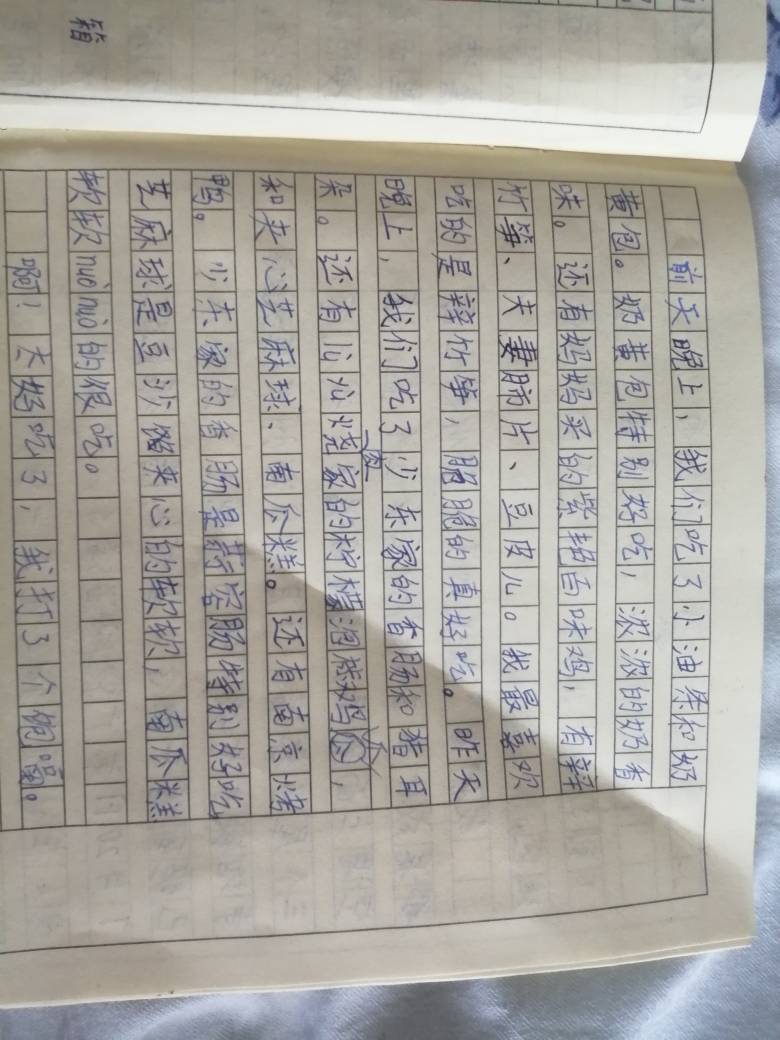 箱
前天晚上，我们吃了小油条和奶
黄包。奶黄包特别好吃，浓浓的奶香
味。还有妈妈买的紫艳百味鸡，有辣
竹笋、夫妻肺片、豆皮儿。我最喜欢
吃的是辣竹笋，脆脆的真好吃。昨天
晚上，我们吃了少东家的香肠和猪耳
朵。还有烧家的柠檬泡鸡爪，
和夹心芝麻球、南瓜糕。还有南京烤
鸭。少东家的香肠是蒜容肠特别好吃
芝麻球是豆沙馅夹心的软软，南瓜糕
软软nuònuò的很吃。
啊！太好吃了，我打了个饱嗝。